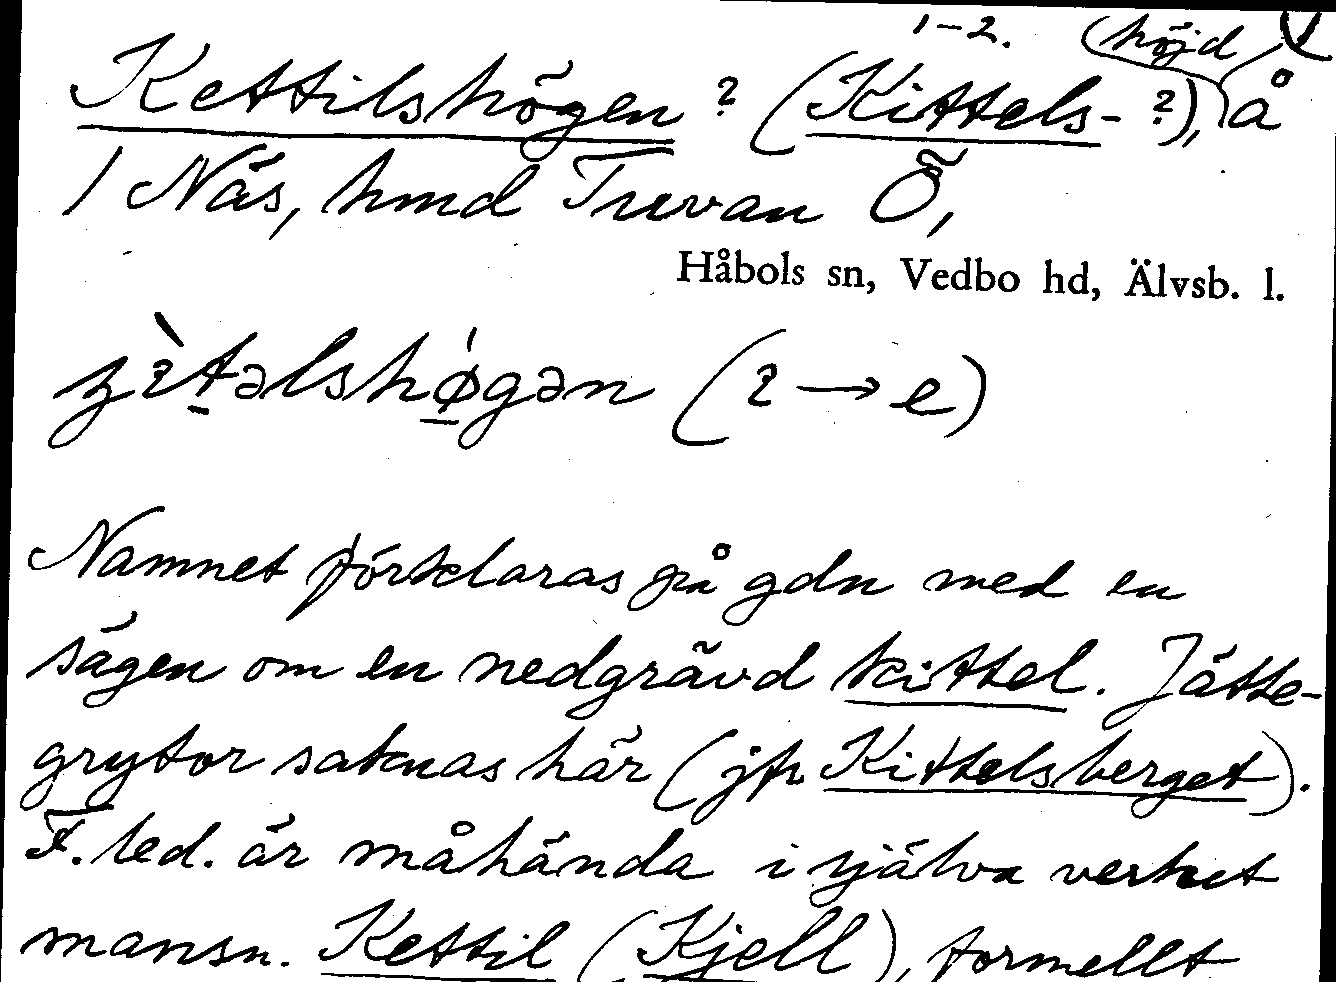 1-2. (höjd
Kettilshögen ? (Kittels- ?), å
1 Näs, hmd Truvan Ö,
Håbols sn, Vedbo hd, Älvsb. l.
(ɂ → e)
Namnet förklaras på gdn med en
sägen om en nedgrävd kittel. Jätte-
grytor saknas här (jfr Kittelsberget).
F. led. är måhända i själva verket
mansn. Kettil (Kjell), formellt